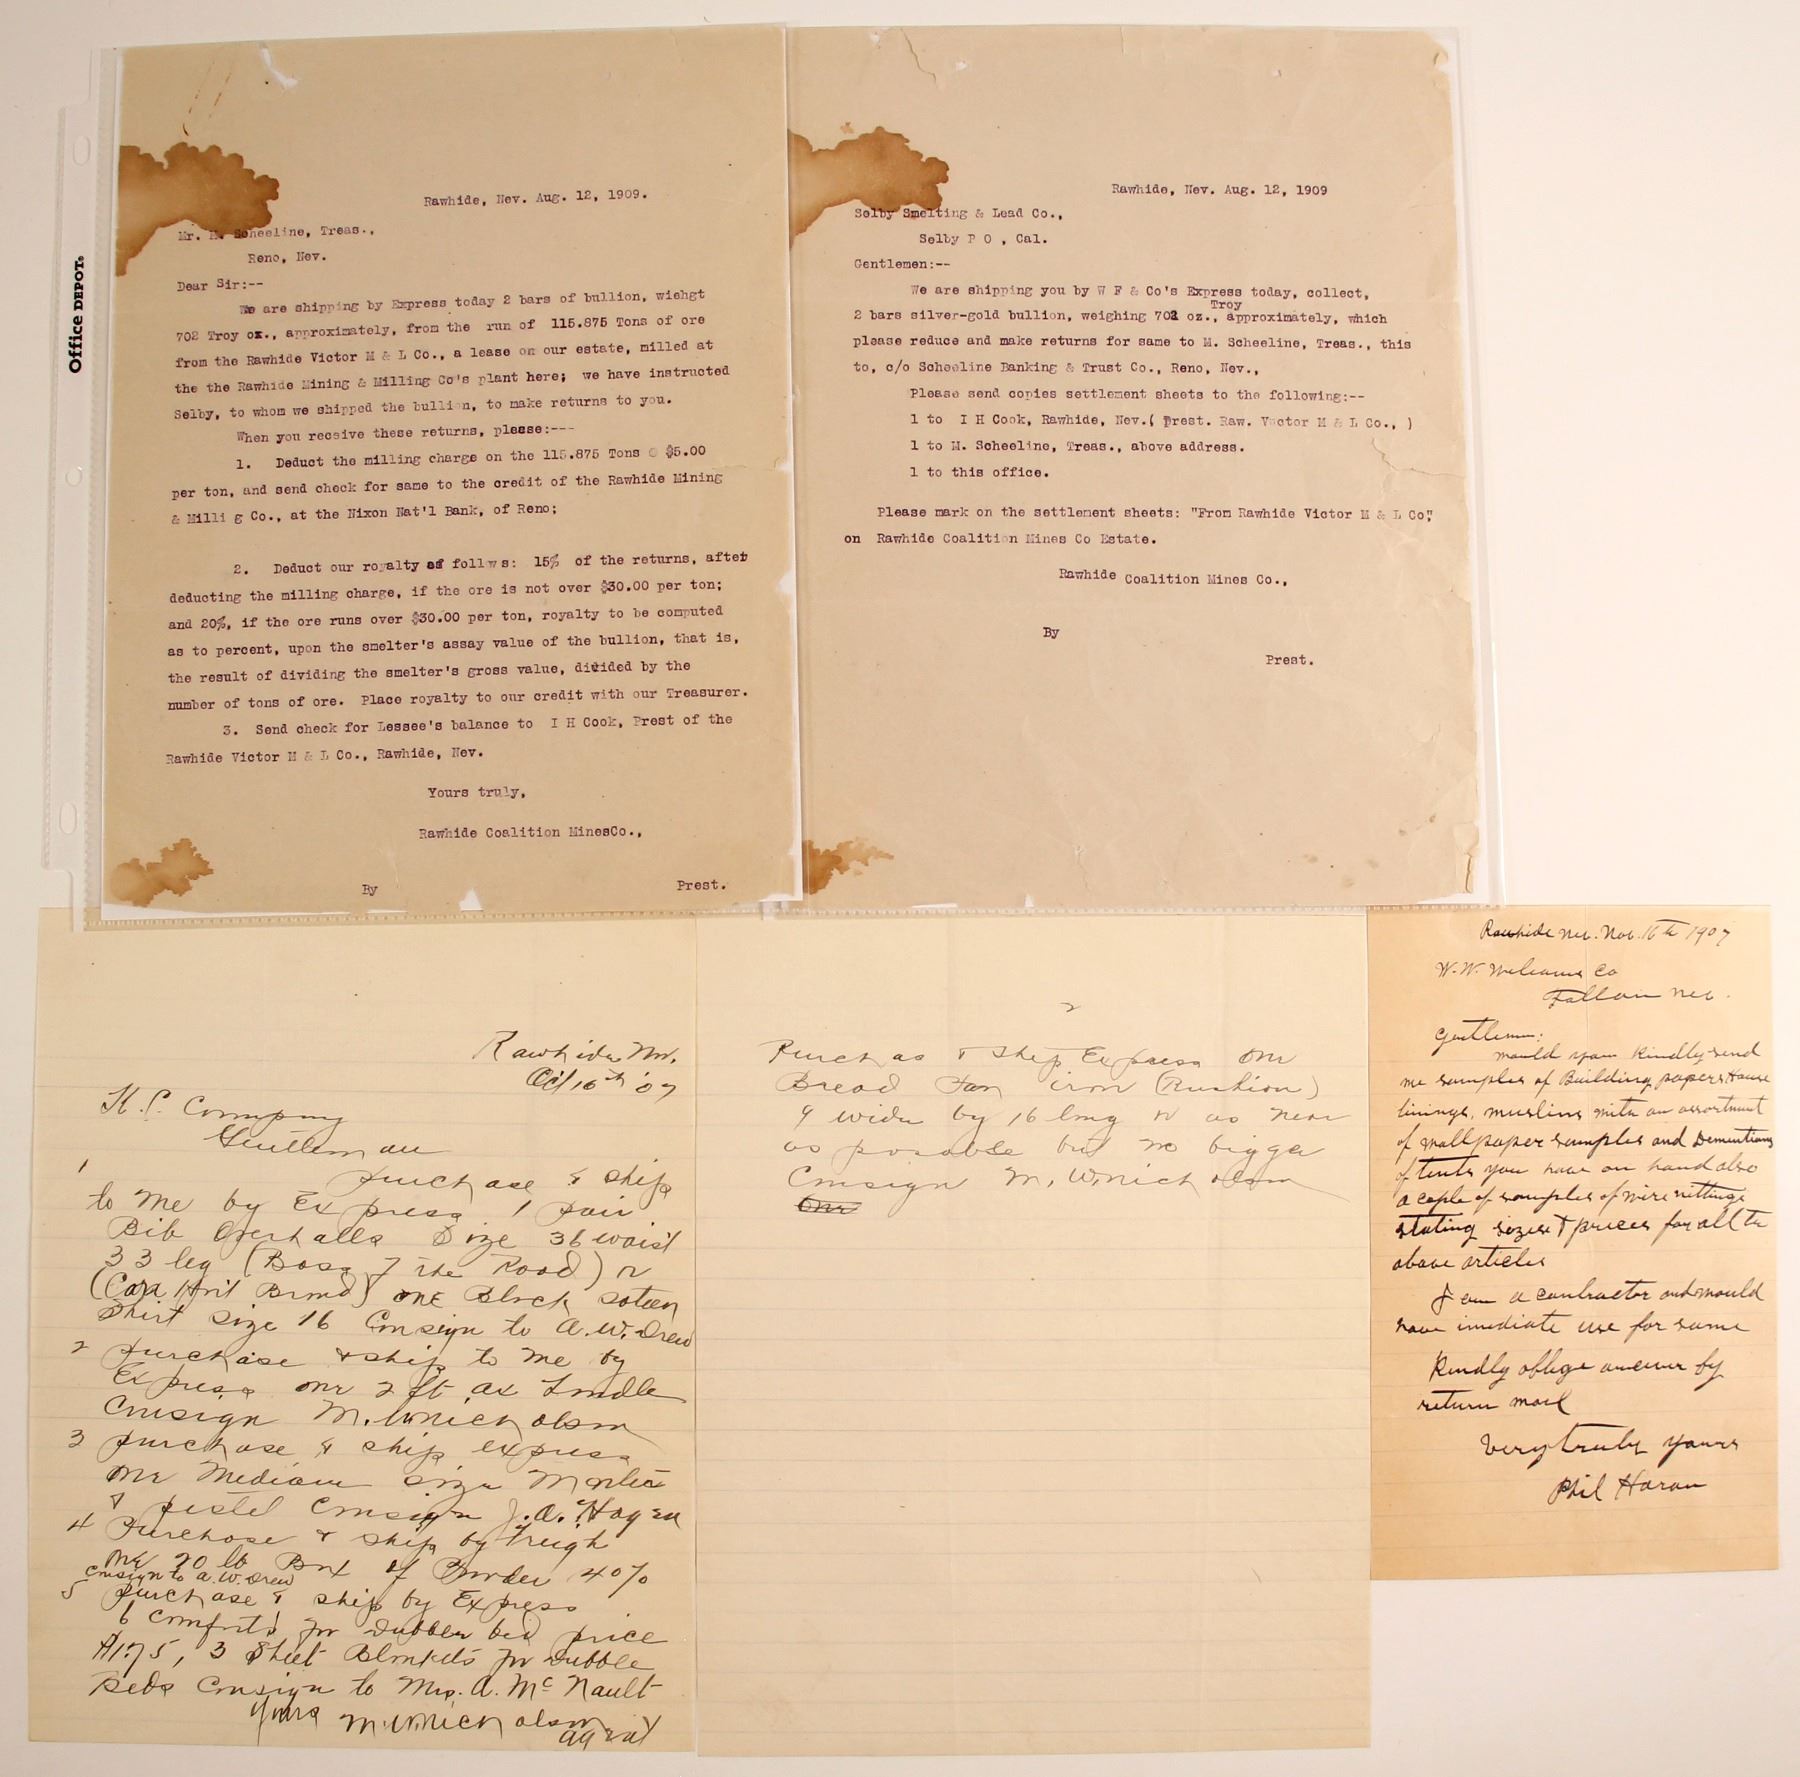 Office DEPOT
Rawhide, Nev. Aug. 12, 1909.
Mr. Scheeline, Treas.,
Reno, Nev.
Dear Sir:--
We are shipping by Express today 2 bars of bullion, wiehgt
702 Troy ox., approximately, from the run of 115.875 Tons of ore
from the Rawhide Victor M & L Co., a lease on our estate, milled at
the the Rawhide Mining & Milling Co's plant here; we have instructed
Selby, to whom we shipped the bullion, to make returns to you.
When you receive these returns, please:---
1. Deduct the milling charge on the 115.875 Tons @ $5.00
per ton, and send check for same to the credit of the Rawhide Mining
& Milli g Co., at the Nixon Nat'l Bank, of Reno;
2. Deduct our royalty as follws: 15% of the returns, after
deducting the milling charge, if the ore is not over $30.00 per ton;
and 20%, if the ore runs over $30.00 per ton, royalty to be computed
as to percent, upon the smelter's assay value of the bullion, that is,
the result of dividing the smelter's gross value, divided by the
number of tons of ore. Place royalty to our credit with our Treasurer.
3. Send check for Lessee's balance to I H Cook, Prest of the
Rawhide Victor M & L Co., Rawhide, Nev.
Yours truly,
Rawhide Coalition MinesCo.,
By Prest.
Rawhide, Nev. Aug. 12, 1909
Selby Smelting & Lead Co.,
Selby P O , Cal.
Gentlemen:--
We are shipping you by W F & Co's Express today, collect,
Troy
2 bars silver-gold bullion, weighing 702 oz., approximately, which
please reduce and make returns for same to M. Scheeline, Treas., this
to, c/o Scheeline Banking & Trust Co., Reno, Nev.,
Please send copies settlement sheets to the following:--
1 to I H Cook, Rawhide, Nev.( Prest. Raw. Victor M & L Co., )
1 to M. Scheeline, Treas., above address.
1 to this office.
Please mark on the settlement sheets: "From Rawhide Victor M & L Co",
on Rawhide Coalition Mines Co Estate.
Rawhide Coalition Mines Co.,
By
Prest.
Rawhide Nv.
Oct 16th '07
K. C. Company
Gentleman
1 purchase & ship
to me by Express 1 pair
Bib Overhalls Size 36 waist
33 leg (Boss of the Road) or
(Can't Brand) one Black sateen
Shirt size 16 Consign to A.W. Drew
2 purchase & ship to me by
Express one 2 ft ax
Consign M. W. Nicholson
3 purchase & ship express
one Mediam size
& pistel Consign J. A. Hagen
4 Purchase & ship by freigh
one 20 lb Box of Powder 40%
Consign to A. W. Drew
5 purchase & ship by Express
6 comforts for dubble bed price
$1.75, 3 Sheet Blankets for dubble
Beds Consign to Mrs. A. McNault
Yours M. W. Nicholson
2
Purchas & Ship Express one
Bread Pan iron
9 wide by 16 long or as near
as posable but no bigger
Consign M. W. Nicholson
one
Rawhide Nev. Nov. 16th 1907
W. W. Williams Co
Fallon Nev.
Gentlemen:
would you kindly send
me samples of Building papers, House
linings, muslins with an assortment
of wallpaper samples and Dementions
of tents you have on hand also
a cople of samples of wire nittings
stating sizes & prices for all the
above articles
I am a contractor and would
have imediate use for same
Kindly oblige answer by
return mail
Very truly yours
Phil Haran